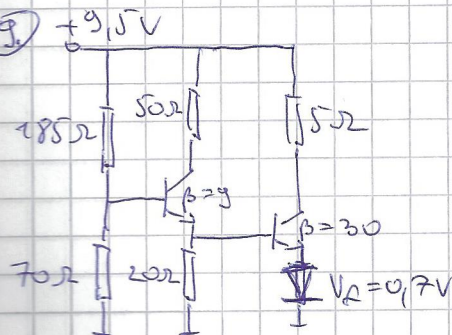 9.
+9,5V
185Ω
50Ω
5Ω
β=9
β=30
70Ω
20Ω
V_f=0,7V